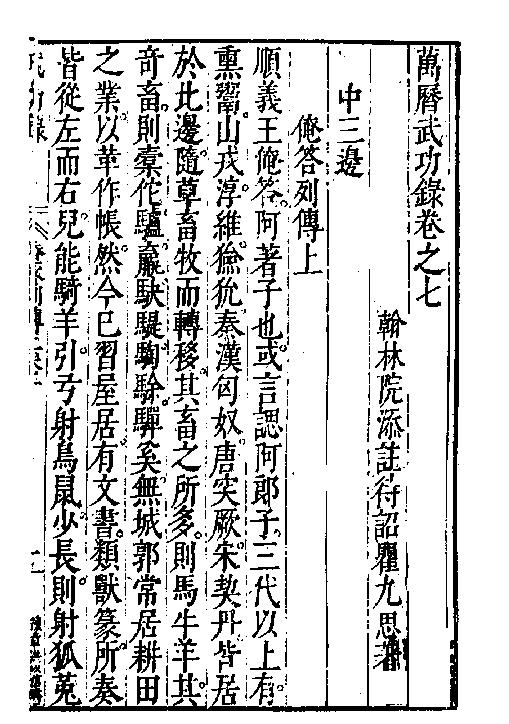 萬曆武功錄卷之七
翰林院添註待詔瞿九思著
中三邊
俺答列傳上
順義王俺答。阿著子也。或言諰阿郎子。三代以上有
熏鬻山戎。淳維。獫狁。秦漢匈奴。唐突厥。宋契丹。皆居
於北邊。隨草畜牧而轉移。其畜之所多。則馬牛羊。其
奇畜。則橐佗驢驘駃騠騊駼驒奚。無城郭常居耕田
之業。以革作帳。然今已習屋居。有文書。類獸篆。所奏
皆從左而右。兒能騎羊。引弓射鳥鼠。少長。則射狐菟